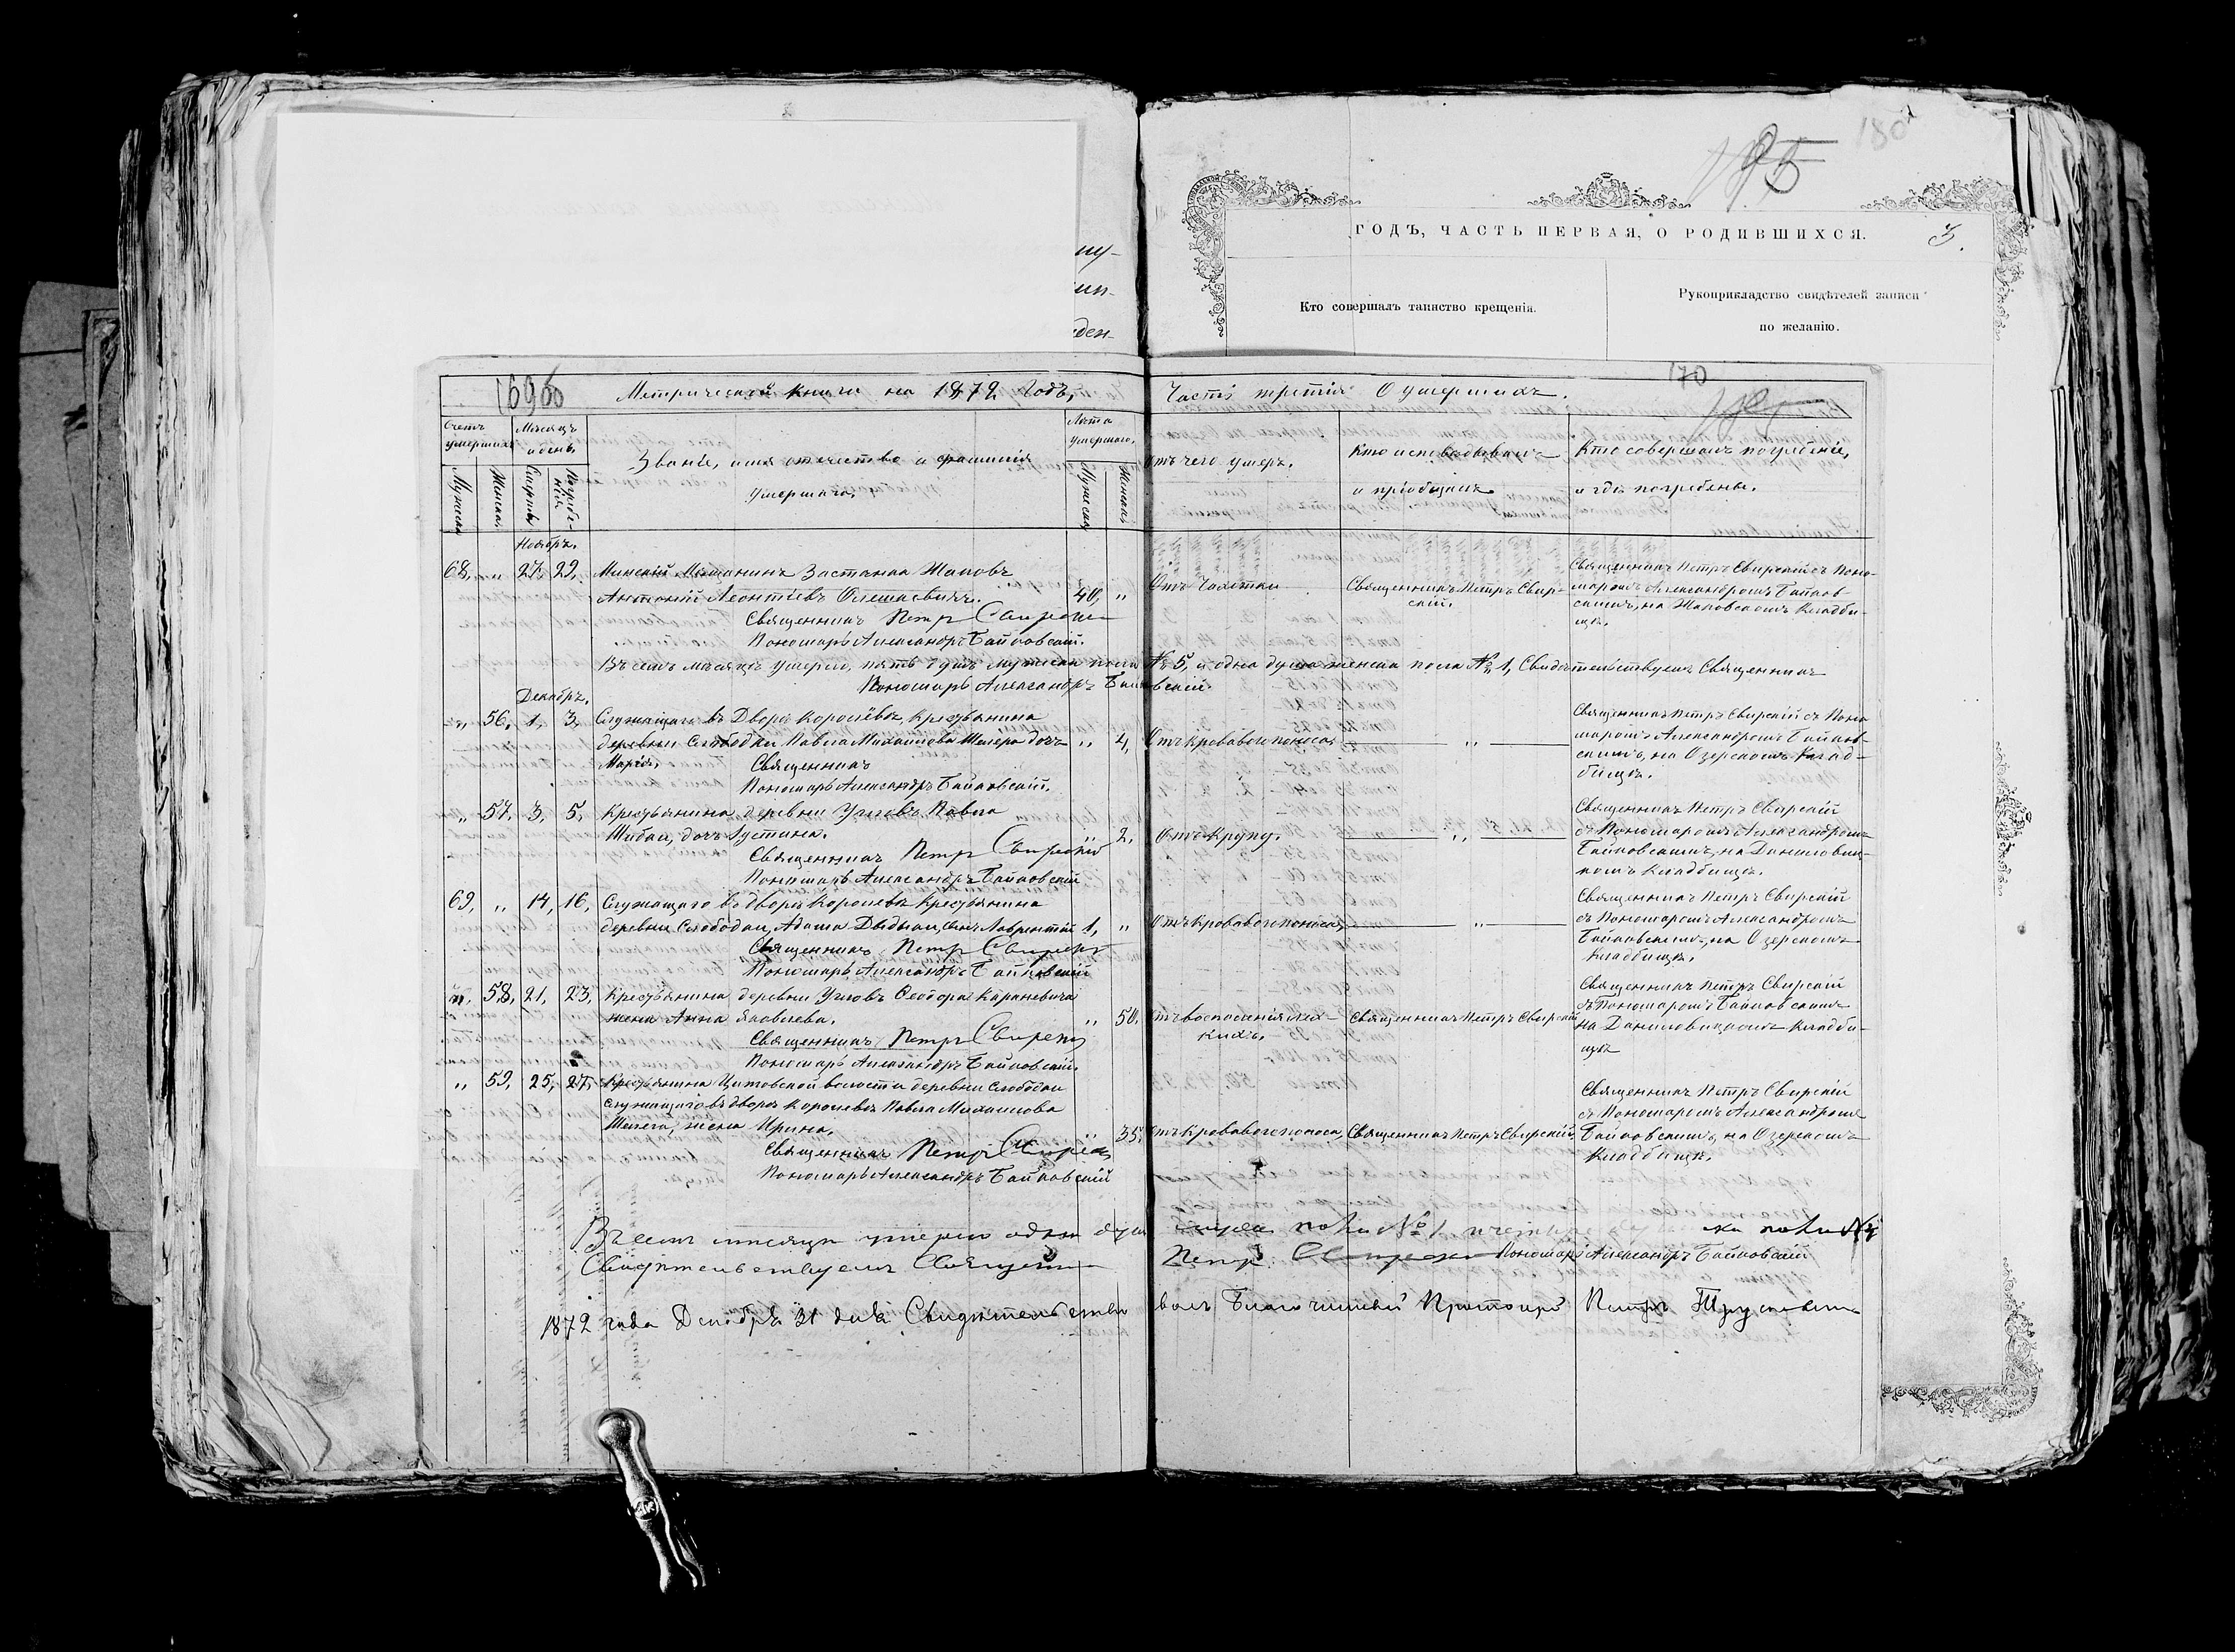 185
180
ГОДЪ, ЧАСТЬ ПЕРВАЯ, О РОДИВШИХСЯ.
3.
Кто совершалъ таинство крещенія.
Рукоприкладство свидѣтелей записи
по желанію.
му-
ден-
170
Метрической книги на 1872 годъ,
Часть третія О умершихъ.
Счетъ умершихъ
Мужеска
Женска
Мѣсяцъ и день
Смерти
Погребенія
Званіе, имя отечество и фамилія
умершаго.
Лѣта умершаго.
Мужеска
Женска
Отъ чего умеръ.
Кто исповѣдывалъ
и пріобщалъ.
Кто совершалъ погребеніе,
и гдѣ погребены.
Ноябрь.
68, „ 27, 29, Минскій Мѣщанинъ Застѣнка Жаковъ
Антоній Леонтіевъ Олешкевичъ. 40, „
Отъ Чахотки
Священникъ Петръ Свир-
скій.
Священникъ Петръ Свирскій съ Поно-
маромъ Александромъ Байков-
скимъ, на Жаковскомъ кладби-
щѣ.
Священникъ Петръ Свирскій
Пономарь Александръ Байковскій.
Въ семъ мѣсяцѣ умерло, пять душъ мужеска пола № 5, и одна душа женска пола № 1, Свидѣтельствуемъ Священникъ
Пономарь Александръ Байковскій.
Декабрь.
„ 56, 1, 3, Служащаго въ Дворѣ Королёвѣ, крестьянина
деревни Слободки Павла Михайлова дочь „ 4,
Марія,
Отъ кроваваго поноса,
„
Священникъ Петръ Свирскій съ Поно
маромъ Александромъ Байков-
скимъ, на Озерскомъ Клад-
бищѣ.
Священникъ
Пономарь Александръ Байковскій.
„ 57, 3, 5, Крестьянина деревни Угловъ Павла
Шибки, дочь Іустина. „ 2.
Отъ крупу.
„
Священникъ Петръ Свирскій
съ Пономаромъ Александромъ
Байковскимъ, на Даниловиц-
комъ кладбищѣ.
Священникъ Петръ Свирскій
Пономарь Александръ Байковскій
69, „ 14, 16, Служащаго въ дворѣ Королевѣ Крестьянина
деревни Слободки, Адама Дыдыки, сынъ Лаврентій 1, „
Отъ кроваваго поноса,
„
Священникъ Петръ Свирскій
съ Пономаромъ Александромъ
Байковскимъ, на Озерскомъ
Кладбищѣ.
Священникъ Петръ Свирскій
Пономарь Александръ Байковскій
„ 58, 21, 23, Крестьянина деревни Угловъ Ѳеодора Караневича
жена Анна Яковлева. „ 50,
Отъ воспаленія лег-
кихъ.
Священникъ Петръ Свирскій
Священникъ Петръ Свирскій
съ Пономаромъ Байковскимъ
на Даниловицкомъ кладби-
щѣ
Священникъ Петръ Свирскій
Пономарь Александръ Байковскій.
„ 59, 25, 27, Крестьянина Цитовской волости деревни Слободки
служащаго въ дворѣ Королевѣ Павла Михайлова
жена Ирина, „ 35,
Отъ кроваваго поноса,
Священникъ Петръ Свирскій.
Священникъ Петръ Свирскій
съ Пономаромъ Александромъ
Байковскимъ, на Озерскомъ
Кладбищѣ.
Священникъ Петръ Свирскій
Пономарь Александръ Байковскій
Въ семъ мѣсяцѣ умерло одна душа мужеска пола № 1 и четыре ска пола № 4
Свидѣтельствуемъ Священникъ Петръ Свирскій Пономарь Александръ Байковскій
1872 года Декабря 31 дня Свидѣтельствовалъ Благочинный Протоіерей Петръ